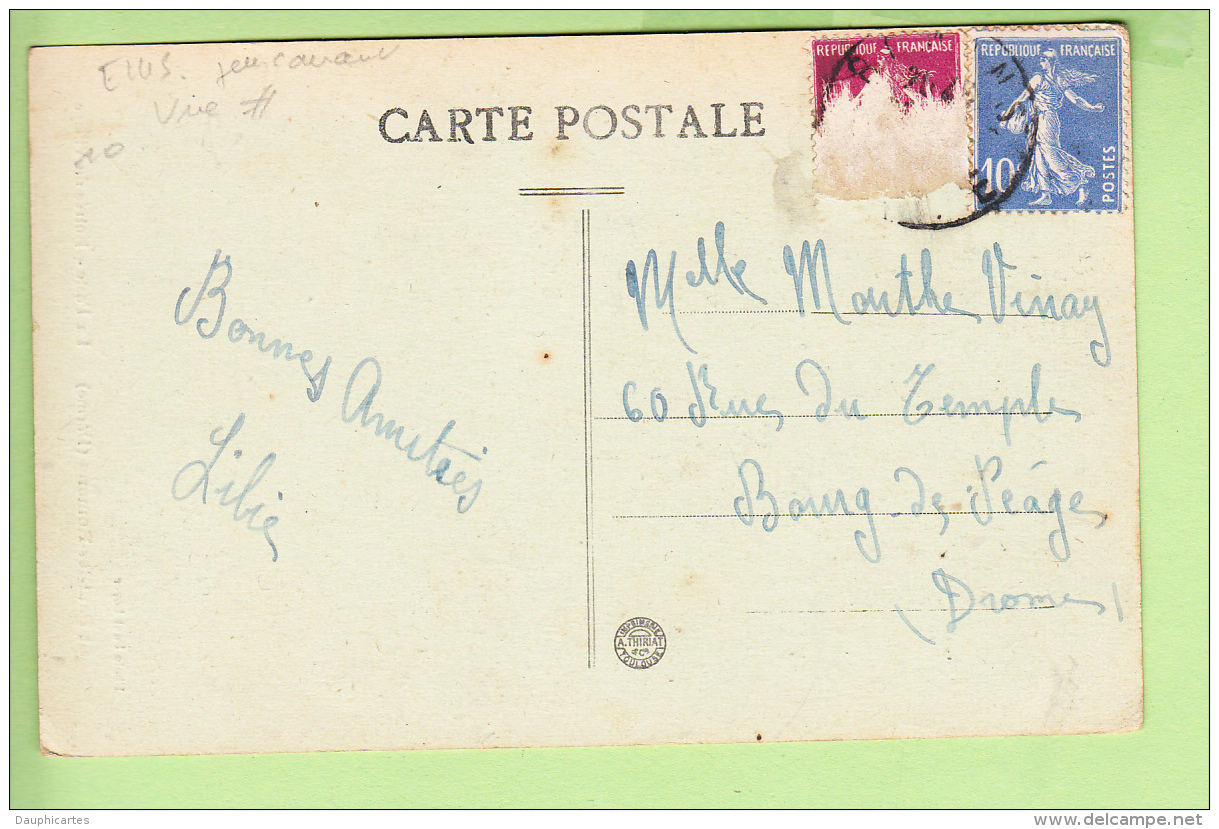 EUS.
Vue #
10
CARTE POSTALE
REPUBLIQUE FRANÇAISE
REPUBLIQUE FRANÇAISE
10c
POSTES
Bonnes Amitiés
Libie
Melle Marthe Vinay
60 Rue du Temple
Bourg-de Péage
(Drome)
IMPRIMERIE
A. THIRIAT
& Cie
TOULOUSE
Dauphicartes